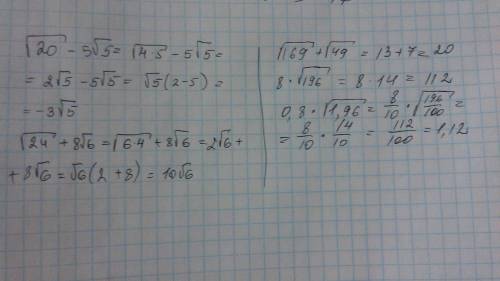 √20 - 5√5 = √4·5 - 5√5 =
= 2√5 - 5√5 = √5(2-5) =
= -3√5
√24 + 8√6 = √6·4 + 8√6 = 2√6 +
+ 8√6 = √6(2+8) = 10√6
√169 + √49 = 13 + 7 = 20
8 · √196 = 8 · 14 = 112
0,8 · √1,96 = 8/10 · √196/100 =
= 8/10 · 14/10 = 112/100 = 1,12